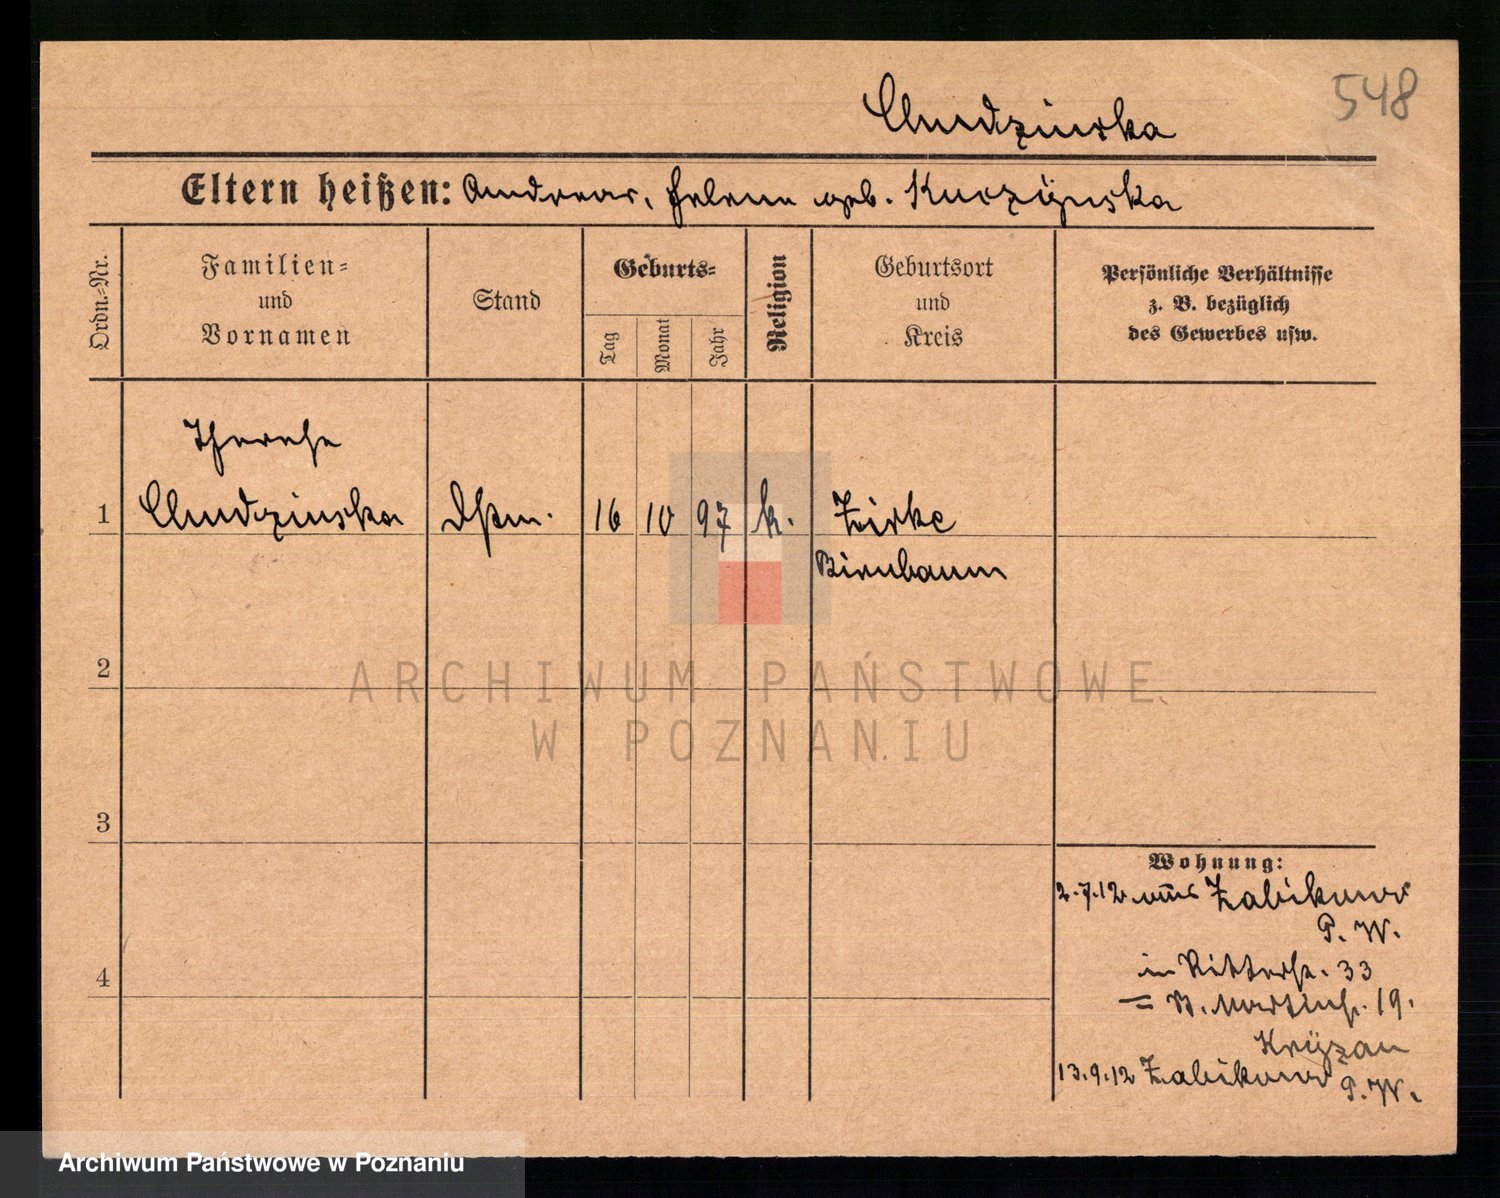 548
Chudzinska
Eltern heißen: Andreas, Helene geb. Kuczÿnska
Ordn.-Nr.
Familien-
und
Vornamen
Stand
Geburts-
Tag
Monat
Jahr
Religion
Geburtsort
und
Kreis
Persönliche Verhältnisse
z. B. bezüglich
des Gewerbes usw.
Therese
1 Chudzinska Dßm. 16 10 97 k. Zirke
Birnbaum
2
3
4
Wohnung:
2.7.12 aus Zabikowo
P. W.
in Ritterstr. 33
= St. Martinstr. 19.
Krÿzan
13.9.12 Zabikowo
P. W.
ARCHIWUM PAŃSTWOWE
W POZNANIU
Archiwum Państwowe w Poznaniu